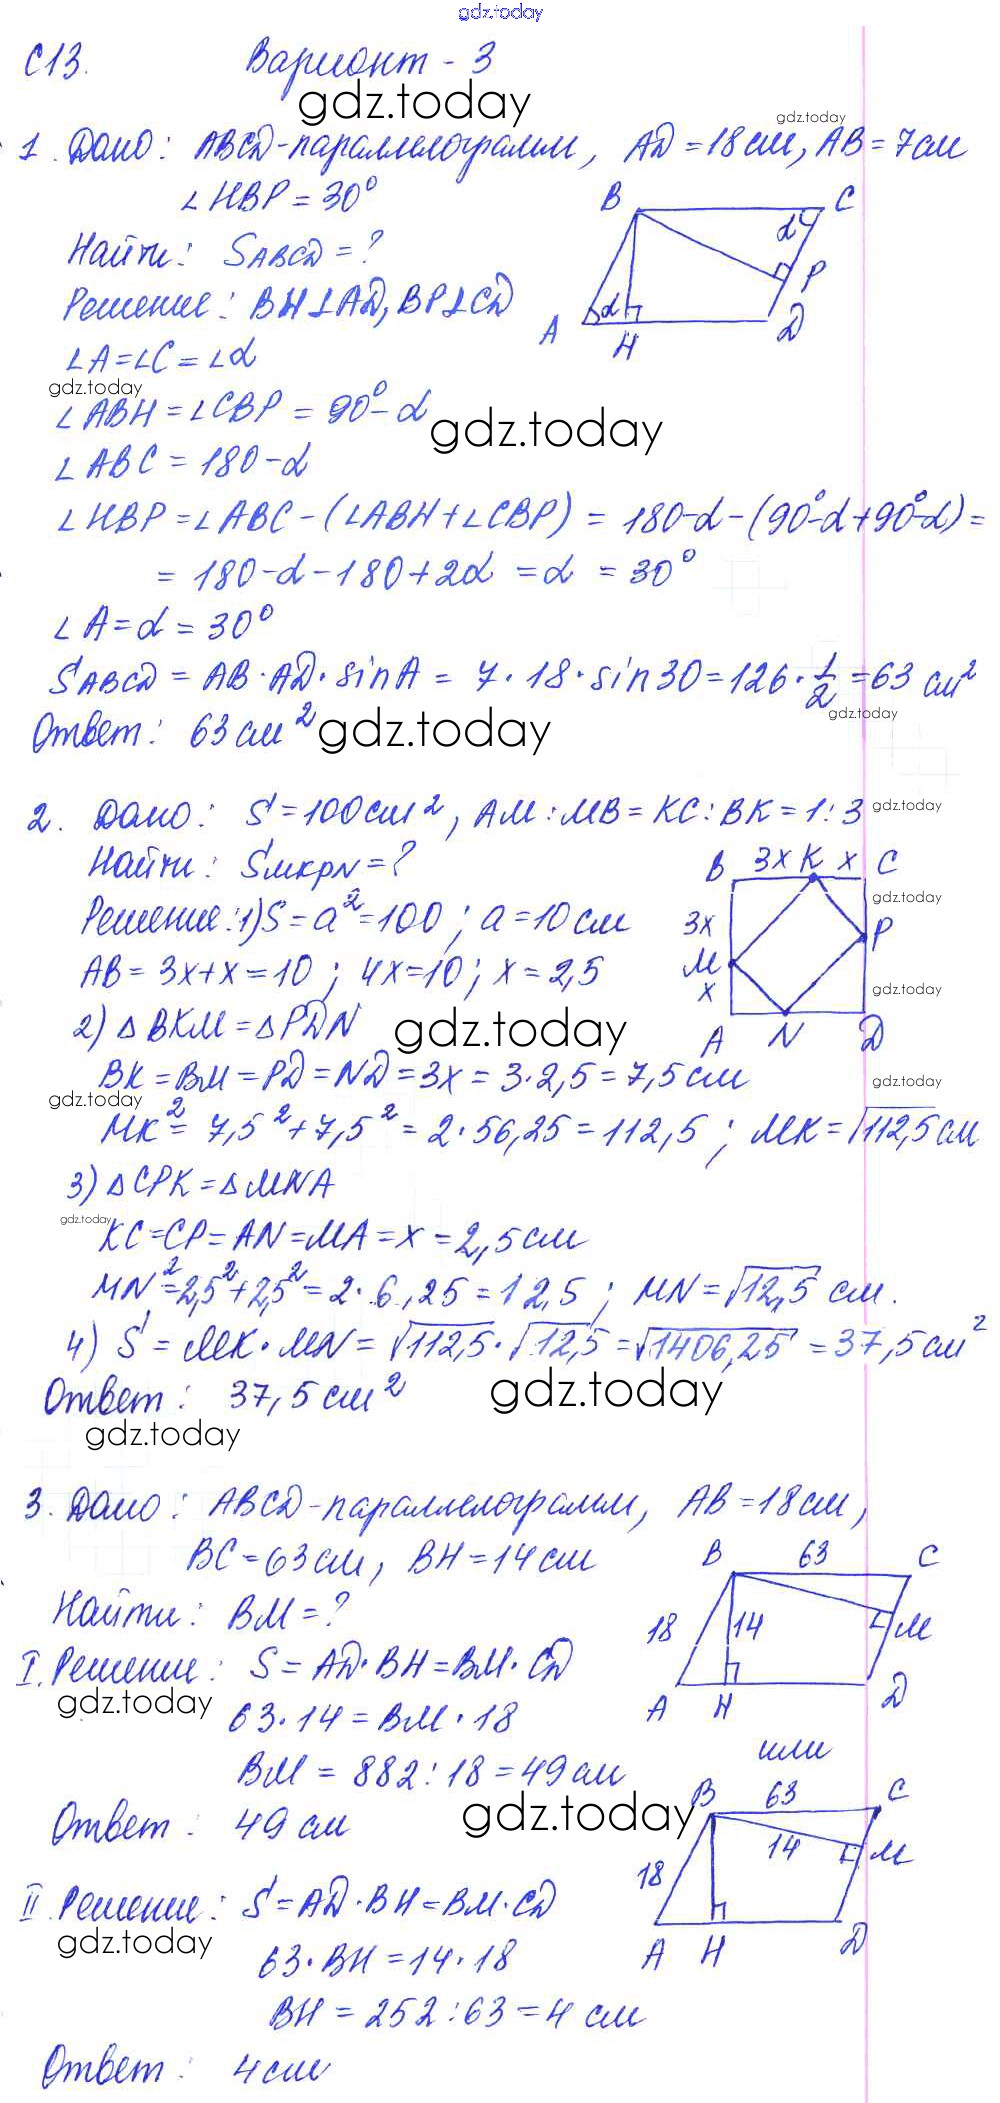 gdz.today
С13. Вариант - 3
gdz.today
gdz.today
1. Дано: ABCD-параллелограмм, AD = 18 см, AB = 7 см
∠HBP = 30°
Найти: SABCD = ?
Решение: BH⊥AD, BP⊥CD
B C
α
P
A α H D
∠A = ∠C = ∠α
gdz.today
∠ABH = ∠CBP = 90° - α
gdz.today
∠ABC = 180 - α
∠HBP = ∠ABC - (∠ABH + ∠CBP) = 180-α - (90°-α + 90°-α) =
= 180 - α - 180 + 2α = α = 30°
∠A = α = 30°
SABCD = AB · AD · sinA = 7 · 18 · sin30 = 126 · 1/2 = 63 см²
gdz.today
Ответ: 63 см²
gdz.today
2. Дано: S = 100 см², AM : MB = KC : BK = 1 : 3
gdz.today
Найти: SMKPN = ?
B 3x K x C
gdz.today
Решение: 1) S = a² = 100 ; a = 10 см
3x P
AB = 3x + x = 10 ; 4x = 10 ; x = 2,5
M x
gdz.today
2) △BKM = △PDN
gdz.today
A N D
BK = BM = PD = ND = 3x = 3 · 2,5 = 7,5 см
gdz.today
gdz.today
MK² = 7,5² + 7,5² = 2 · 56,25 = 112,5 ; MK = √112,5 см
3) △CPK = △MNA
gdz.today
KC = CP = AN = MA = x = 2,5 см
MN² = 2,5² + 2,5² = 2 · 6,25 = 12,5 ; MN = √12,5 см.
4) S = MK · MN = √112,5 · √12,5 = √1406,25 = 37,5 см²
Ответ: 37,5 см²
gdz.today
gdz.today
3. Дано: ABCD-параллелограмм, AB = 18 см,
BC = 63 см, BH = 14 см
B 63 C
Найти: BM = ?
18 14 M
I. Решение: S = AD · BH = BM · CD
A H D
gdz.today
63 · 14 = BM · 18
или
BM = 882 : 18 = 49 см
B 63 C
gdz.today
Ответ: 49 см
14 M
18
II. Решение: S = AD · BH = BM · CD
gdz.today
A H D
63 · BH = 14 · 18
BH = 252 : 63 = 4 см
Ответ: 4 см